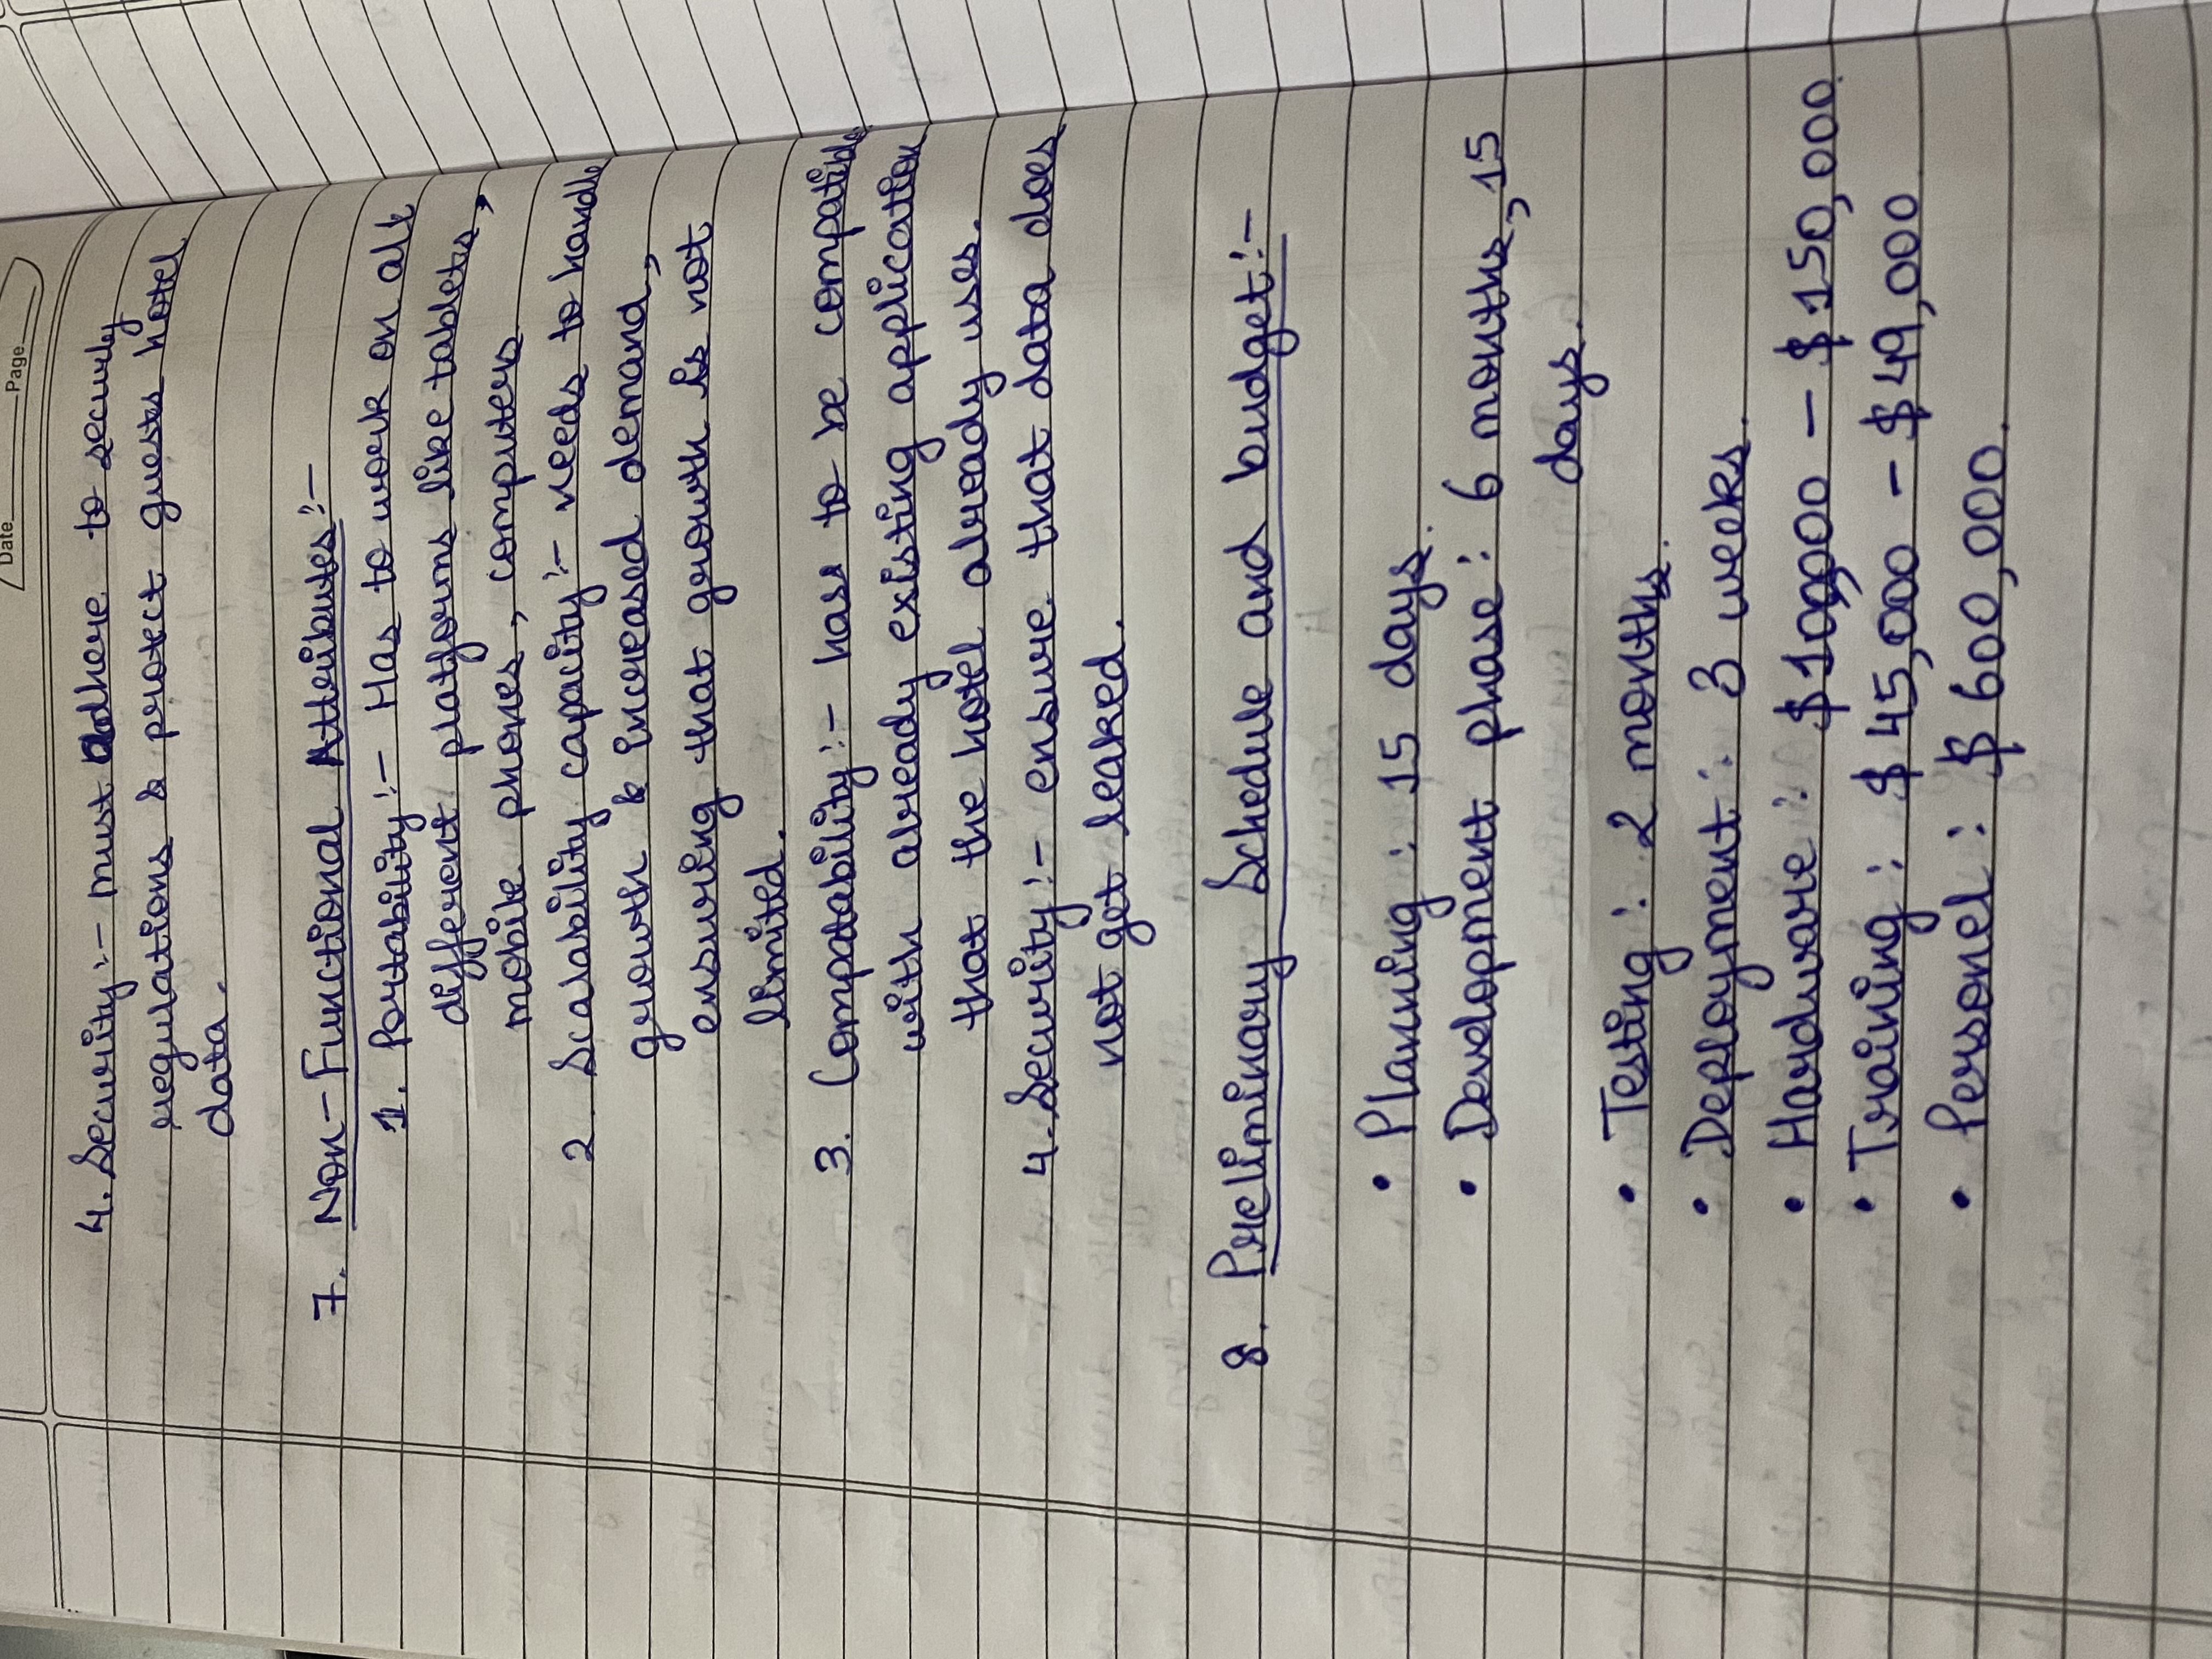 Date Page
4. Security :- must adhere to security
regulations & protect guests hotel
data.
7. Non-Functional Attributes :-
1. Portability :- Has to work on all
different platforms like tablets,
mobile phones, computers
2 Scalability capacity :- needs to handle
growth & increased demand,
ensuring that growth is not
limited.
3. Compatability :- has to be compatible
with already existing application
that the hotel already uses.
4. Security :- ensure that data does
not get leaked.
8. Preliminary Schedule and budget :-
• Planning : 15 days.
• Development phase : 6 months, 15
days.
• Testing : 2 months.
• Deployment : 3 weeks.
• Hardware : $100,000 - $150,000.
• Training : $45,000 - $49,000
• Personel : $600,000.